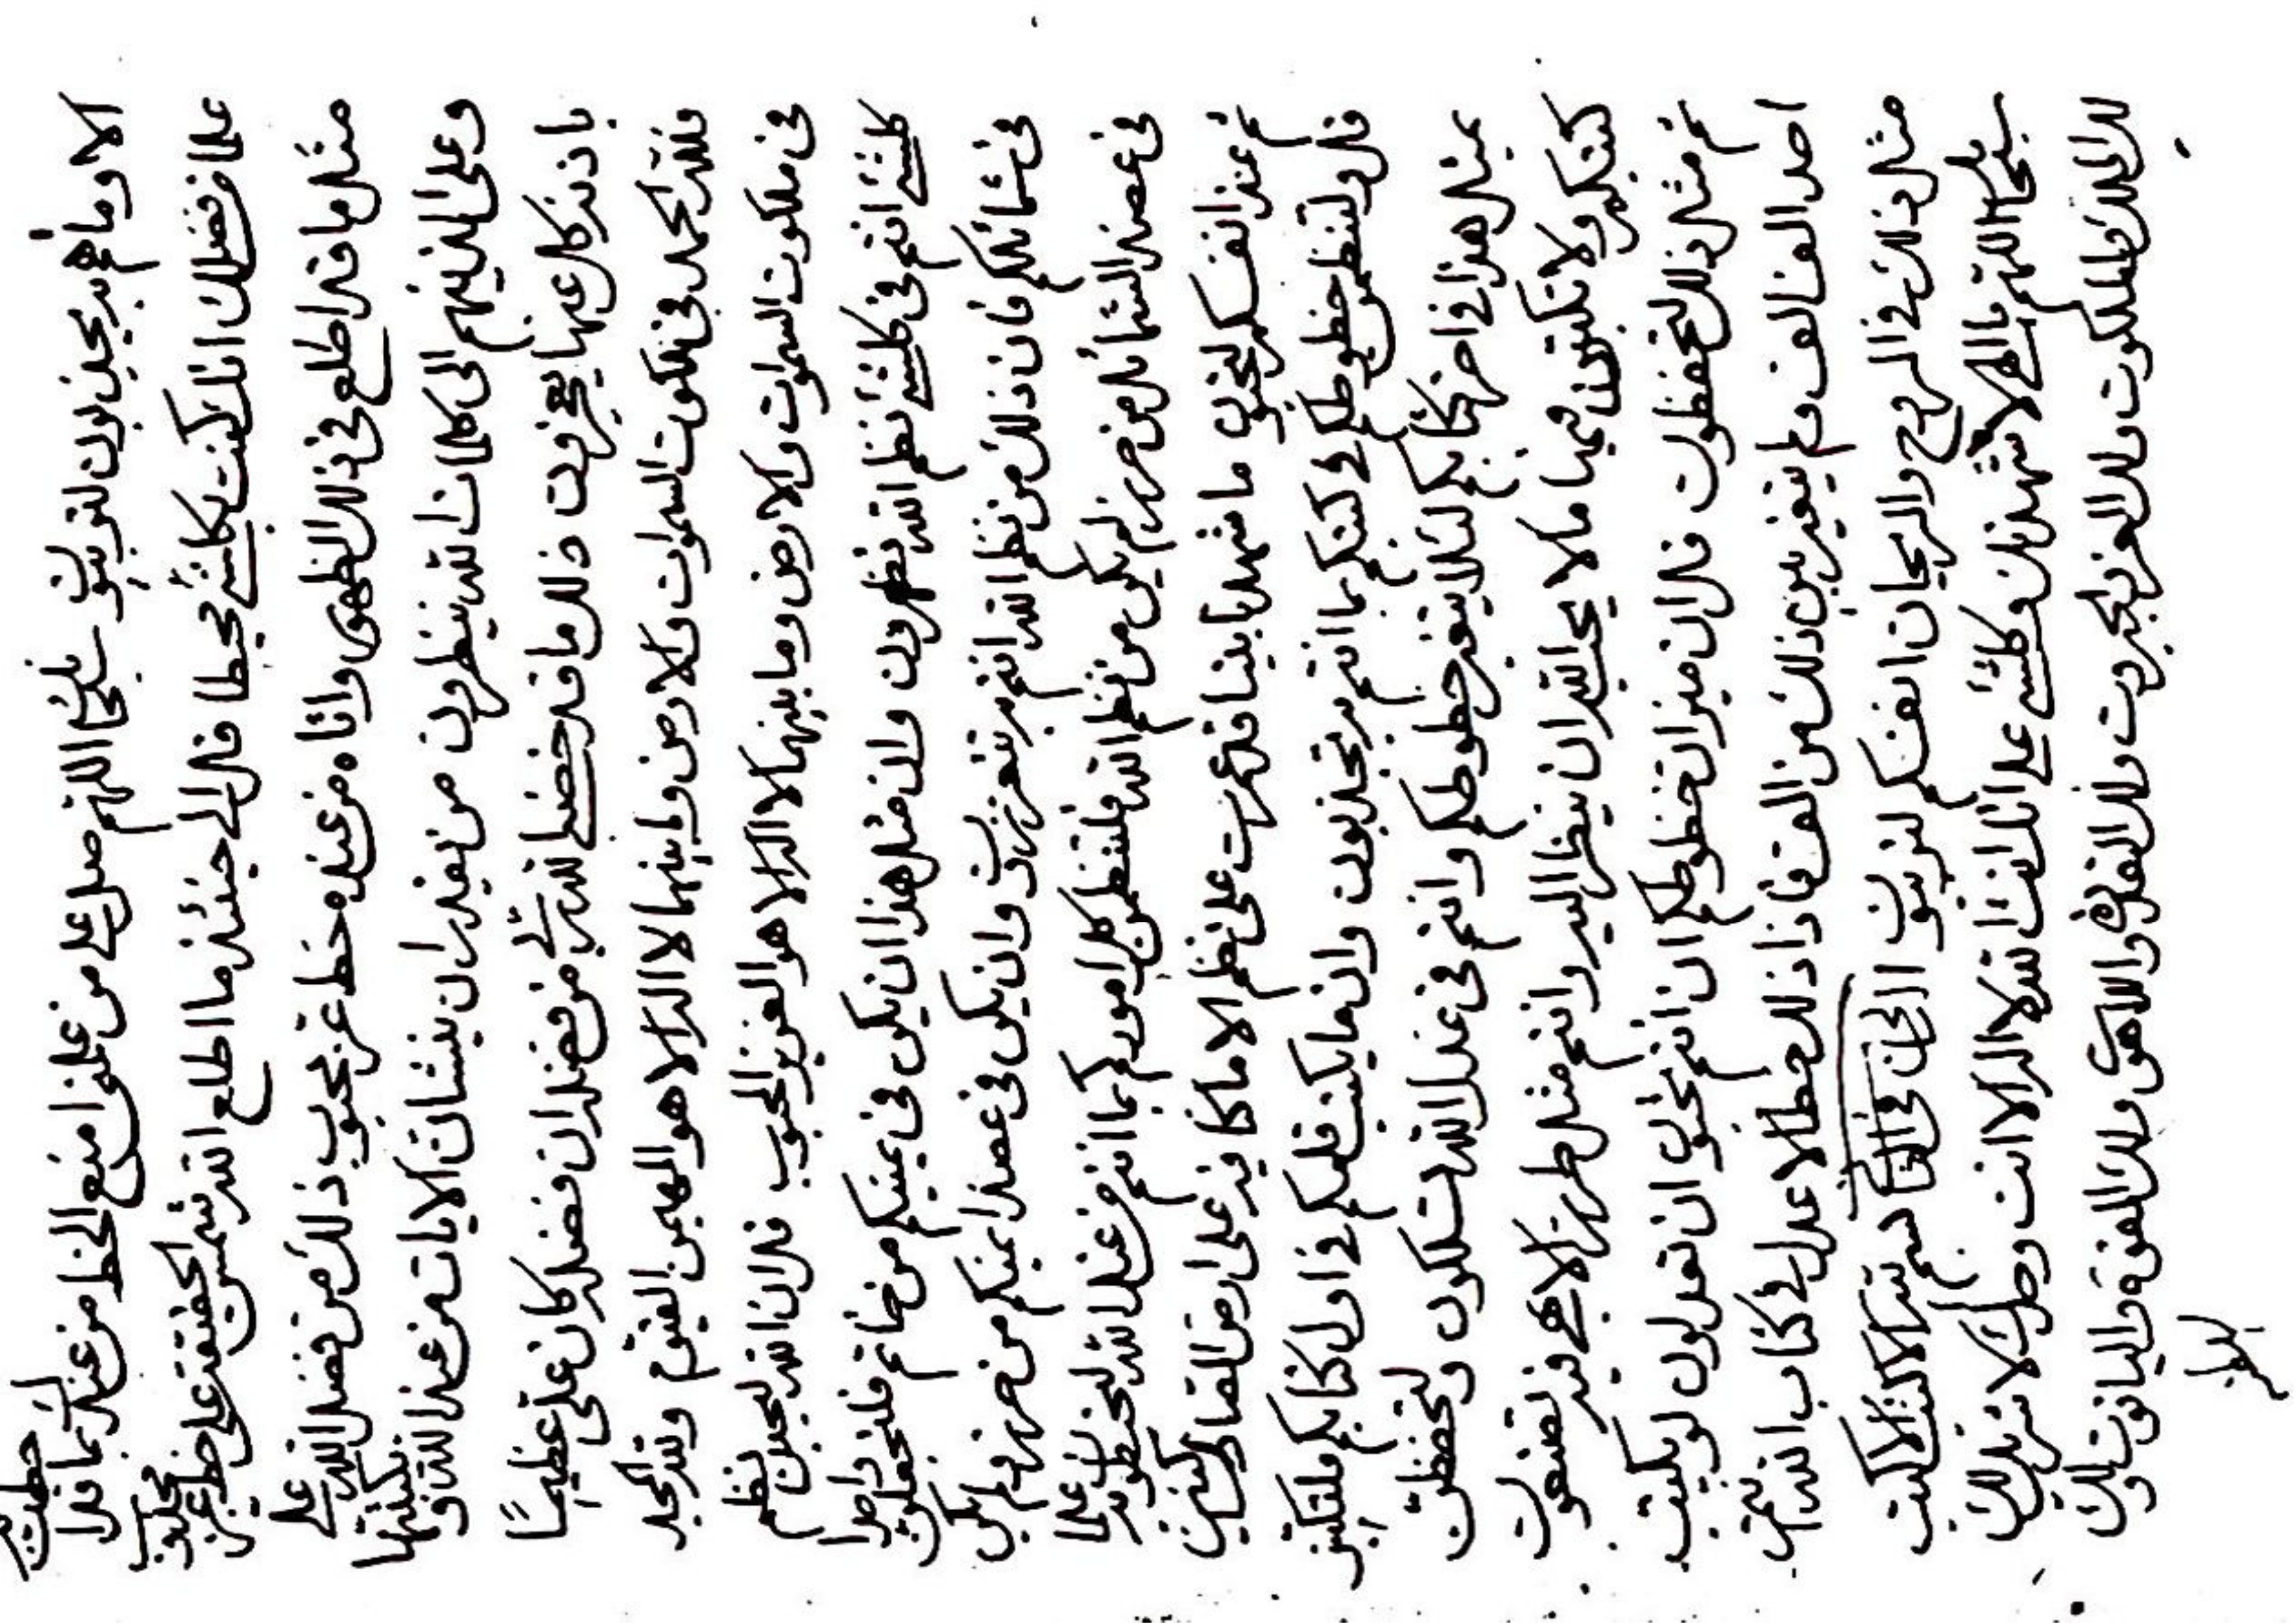 الا وما هم به يجذبون اللهم صل على من
علما فضلك انك كنت بكلشيء محيطا قل الى حينئذ ما اطلع الله شمس الحقيقة على خط
مثل ما قد اطلع في ذلك الظهور واتاه من عنده خط عز محبوب ذلك من فضل الله على
وعلى الذينهم الى كلمات الله ينظرون من يقدر ان ينشأن الآيات من عند الله و يكتبنها
باذنه كل عنها يعجزون ذلك ما قد خصني الله ربي من فضله ان فضله كان علي عظيما
فلله الحمد في ملكوت السموات والارض وما بينهما لا اله الا هو المهيمن القيوم ولله المجد
في ملكوت السموات والارض وما بينهما لا اله الا هو العزيز المحبوب قل ان الله ليحبن نظم
كلشيء انتم في كلشيء نظم الله تظهرون وان مثل هذا ان يكون في يمينكم من خاتم فلتجعلون واحدا
في شمائلكم فان ذلك من نظم الله انتم به تعززون وان يكون في عضد ايمنكم من حرز ولم يكن
في عضد الشمائل من حرز لم يكن من نظم الله فلتنظمن كل اموركم بما انتم من عند الله
ثم عند انفسكم لتحبون ما شهدنا بيتا قد عمرت على نظم الا ما كنا فيه على ارض
قل ولتنظمن خطوطكم في كتبكم بما انتم به تجذبون وان ما يكتب قلمكم في اول كتابكم فلتكتبن
بمثل هذا في اخر كتابكم لئلا يتغير خطوطكم وانتم في عند الله تسلكون ولتحفظن
كتبكم ولا تكتبون فيها ما لا يحب الله ان ينظر اليه وانتم مثل طرز الابهى فيه تصنعون
ثم مثل ذلك لتحفظون قل ان ميزان خطوطكم ان انتم تحبون ان تعدلون لو يكتب
احد الف الف ولم يتغير بين ذلك من الف فاذا ذلك خط الاعدل في كتاب الله انتم
مثل ذلك في الروح والريحان انفسكم لتربيون بسم الله الاكتب الاكتب
سبحانك اللهم يا الهي لاشهدنك وكلشيء على انك انت الله لا اله الا انت وحدك لا شريك لك
لك الملك والملكوت ولك العز والجبروت ولك القدرة واللاهوت ولك القوة والياقوت ولك